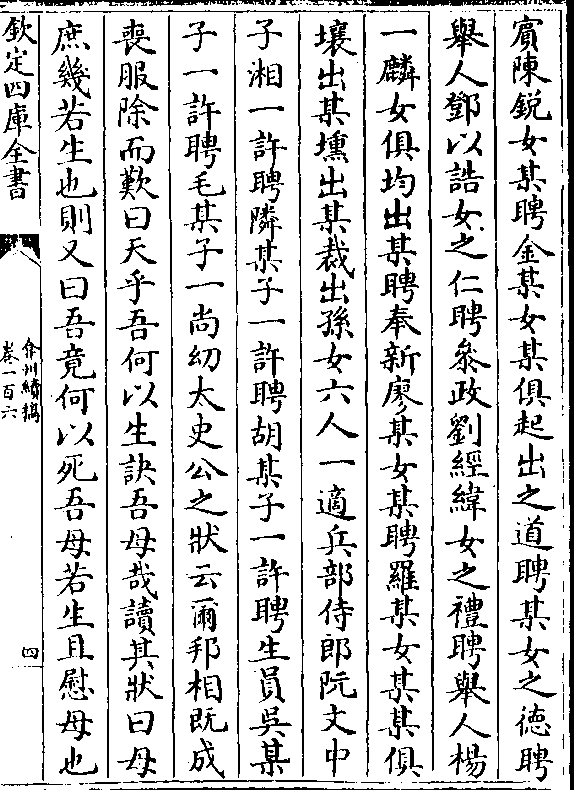 賔陳銳女某聘金某女某俱起出之道聘某女之德聘
舉人鄧以誥女之仁聘叅政劉經緯女之禮聘舉人楊
一麟女俱均出某聘奉新廖某女某聘羅某女某某俱
壤出某壎出某裁出孫女六人一適兵部侍郎阮文中
子湘一許聘隣某子一許聘胡某子一許聘生員吳某
子一許聘毛某子一尚幼太史公之狀云爾邦相既成
喪服除而歎曰天乎吾何以生訣吾母哉讀其狀曰母
庶幾若生也則又曰吾竟何以死吾母若生且慰母也
欽定四庫全書
弇州續稿
卷一百六
四